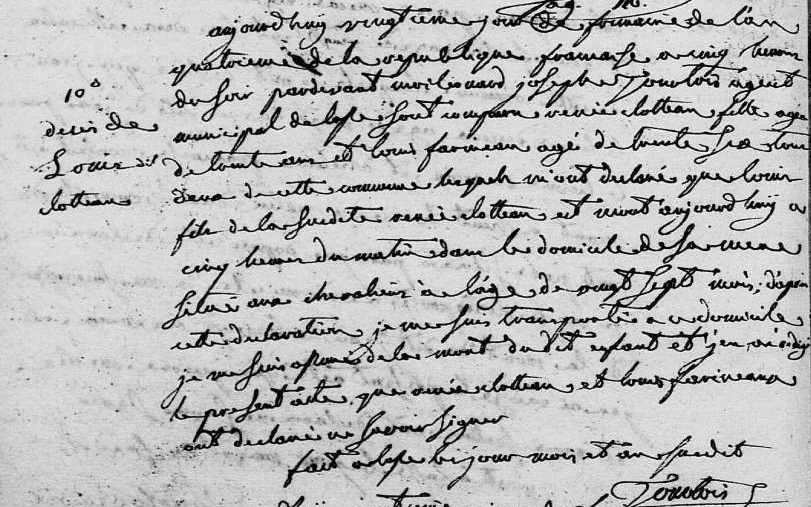 aujourdhuy vingtieme jour de frimaire de l'an
quatrieme de la republique francaise a cinq heures
du soir pardevant moi Leonard joseph agent
municipal de sont comparu renée clotteau fille agee
de trente ans et louis farineau agé de trente six tous
deux de cette commune lesquels m'ont declaré que louis
fils de la suedite renée clotteau est mort aujourd huy a
cinq heures du matin dans le domicile de sa mere
situé aux chevaliers a l'âge de vingt sept mois, d'apres
cette declaration je me suis transporté a ce domicile
je me suis assuré de la mort du dit enfant et j'en ai redigé
le present acte, que renée clotteau et louis farineau
ont declaré ne savoir signer
fait a les jour mois et an suedit
10e
deces de
Louis dit
clotteau